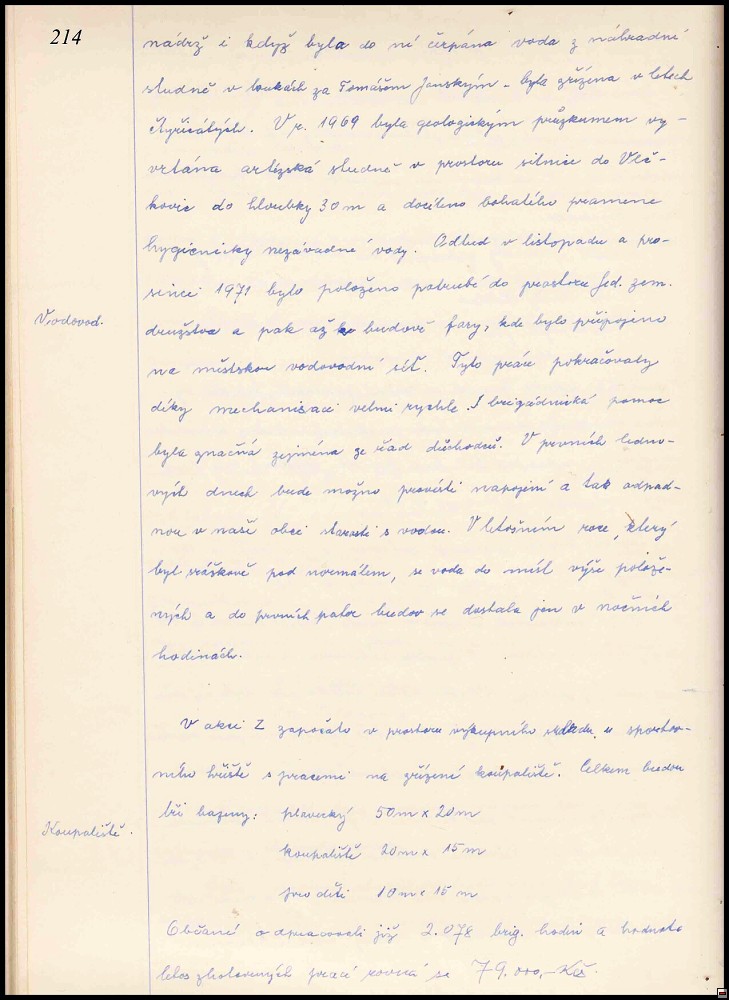 214
nádrž i když byla do ní čerpána voda z náhradní
studně v loukách za Tomášem Janským - byla zřízena v letech
čtyřicátých. V r. 1969 byla geologickým průzkumem vy-
vrtána artézská studně v prostoru silnice do Vlč-
kovic do hloubky 30 m a docíleno bohatého pramene
hygienicky nezávadné vody. Odtud v listopadu a pro-
sinci 1971 bylo položeno potrubí do prostoru Jed. zem.
Vodovod.
družstva a pak až ke budově fary, kde bylo připojeno
na městskou vodovodní síť. Tyto práce pokračovaly
díky mechanisaci velmi rychle. I brigádnická pomoc
byla značná zejména ze řad důchodců. V prvních ledno-
vých dnech bude možno provésti napojení a tak odpad-
nou v naší obci starosti s vodou. V letošním roce, který
byl srážkově pod normálem, se voda do míst výše polože-
ných a do prvních pater budov se dostala jen v nočních
hodinách.
V akci Z započato v prostoru výkupního skladu u sportov-
ního hřiště s pracemi na zřízení koupaliště. Celkem budou
tři bazeny: plavecký 50 m x 20 m
Koupaliště.
koupaliště 20 m x 15 m
pro děti 10 m x 15 m
Občané odpracovali již 2.078 brig. hodin a hodnota
letos zhotovených prací rovná se 79.000,- Kčs.